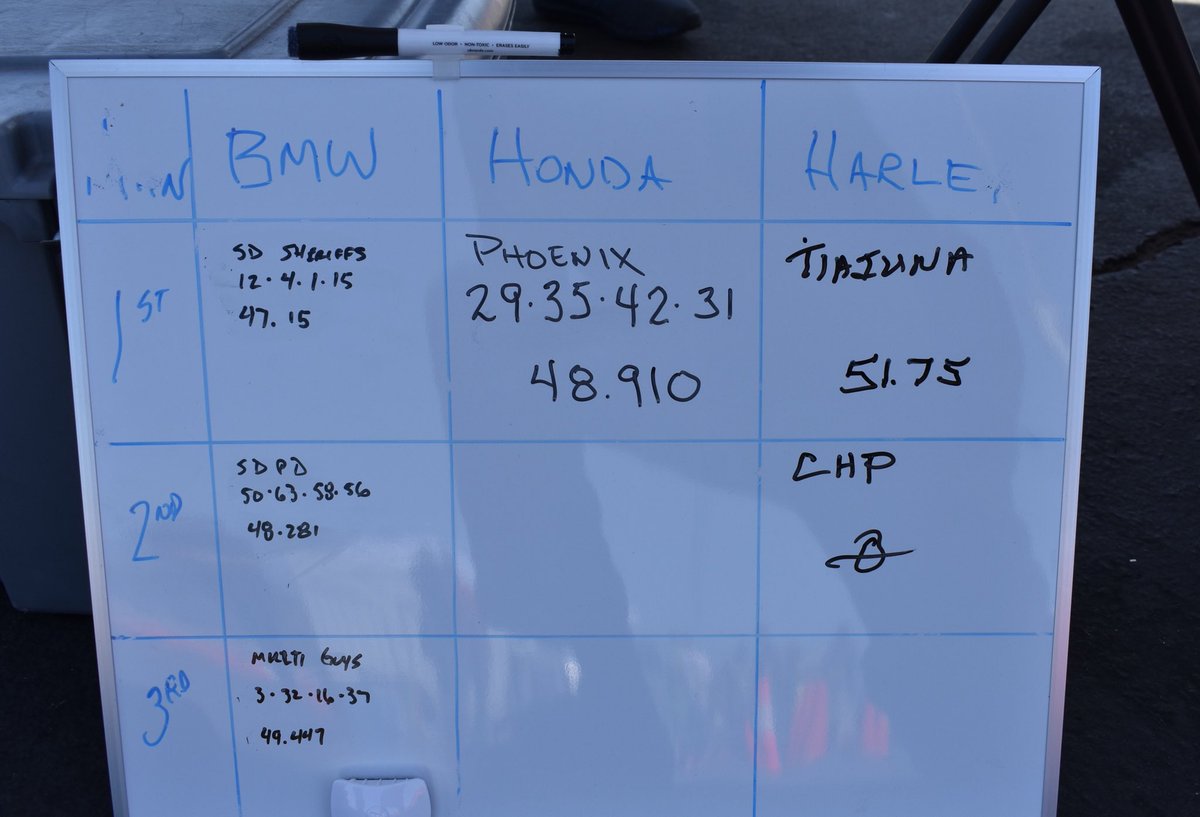 LOW ODOR • NON-TOXIC • ERASES EASILY
BMW
HONDA
HARLE
1ST
SD SHERIFFS
12.4.1.15
47.15
PHOENIX
29.35.42.31
48.910
TIAIUNA
51.75
2ND
SDPD
50.63.58.56
48.281
CHP
3RD
MULTI GUYS
3.32.16.37
49.447